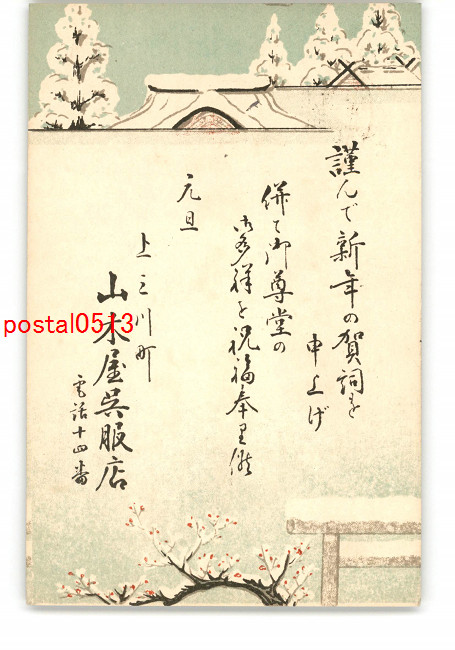 謹んで新年の賀詞を
申上げ
併て御尊堂の
御多祥を祝福奉里候
元旦
上三川町
山木屋呉服店
電話十四番
postal0513